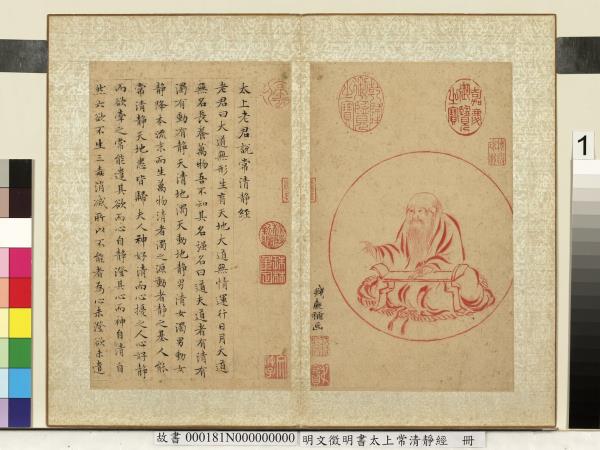 太上老君說常清靜經
老君曰大道無形生育天地大道無情運行日月大道
無名長養萬物吾不知其名强名曰道夫道者有清有
濁有動有靜天清地濁天動地靜男清女濁男動女
靜降本流末而生萬物清者濁之源動者靜之基人能
常清靜天地悉皆歸夫人神好清而心擾之人心好靜
而欲牽之常能遣其欲而心自靜澄其心而神自清自
然六欲不生三毒消滅所以不能者為心未澄欲未遣
嘉慶御覽之寶
乾隆御覽之寶
1
故書 000181N000000000 明文徵明書太上常清靜經 冊